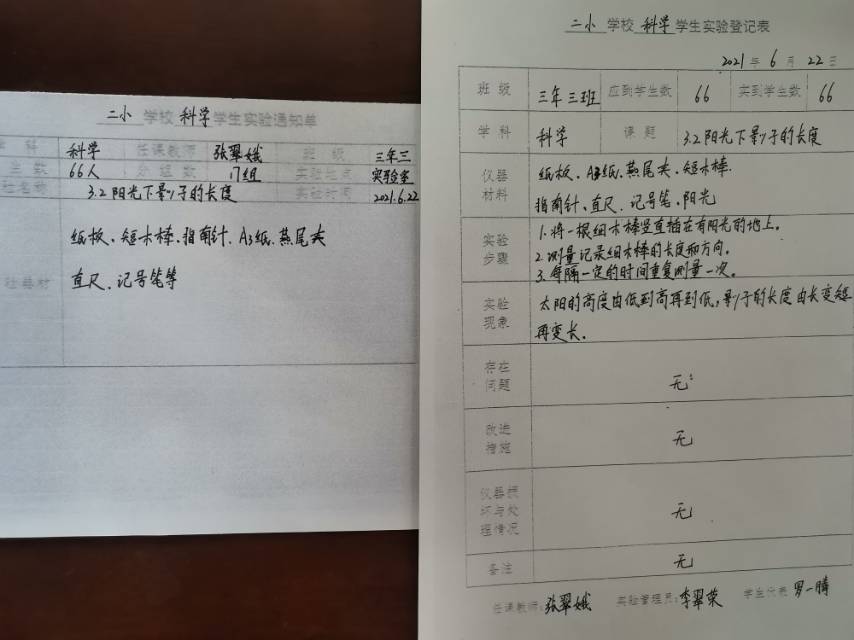 二小 学校 科学 学生实验通知单
学科 科学 任课教师 张翠娥 班级 三年三
学生数 66人 分组数 17组 实验地点 实验室
实验名称 3.2阳光下影子的长度 实验时间 2021.6.22
纸板、短木棒、指南针、A3纸、燕尾夹
实验器材 直尺、记号笔等
二小 学校 科学 学生实验登记表
2021年 6月 22日
班级 三年三班 应到学生数 66 实到学生数 66
学科 科学 课题 3.2阳光下影子的长度
仪器 纸板、A3纸、燕尾夹、短木棒.
材料 指南针、直尺、记号笔、阳光
1.将一根细木棒竖直插在有阳光的地上。
实验 2.测量记录细木棒的长度和方向。
步骤 3.每隔一定的时间重复测量一次。
实验 太阳的高度由低到高再到低,影子的长度由长变短
现象 再变长.
存在
问题 无
改进
措施 无
仪器损
坏与处 无
理情况
备注 无
任课教师:张翠娥 实验管理员:李翠荣 学生代表 罗一腾